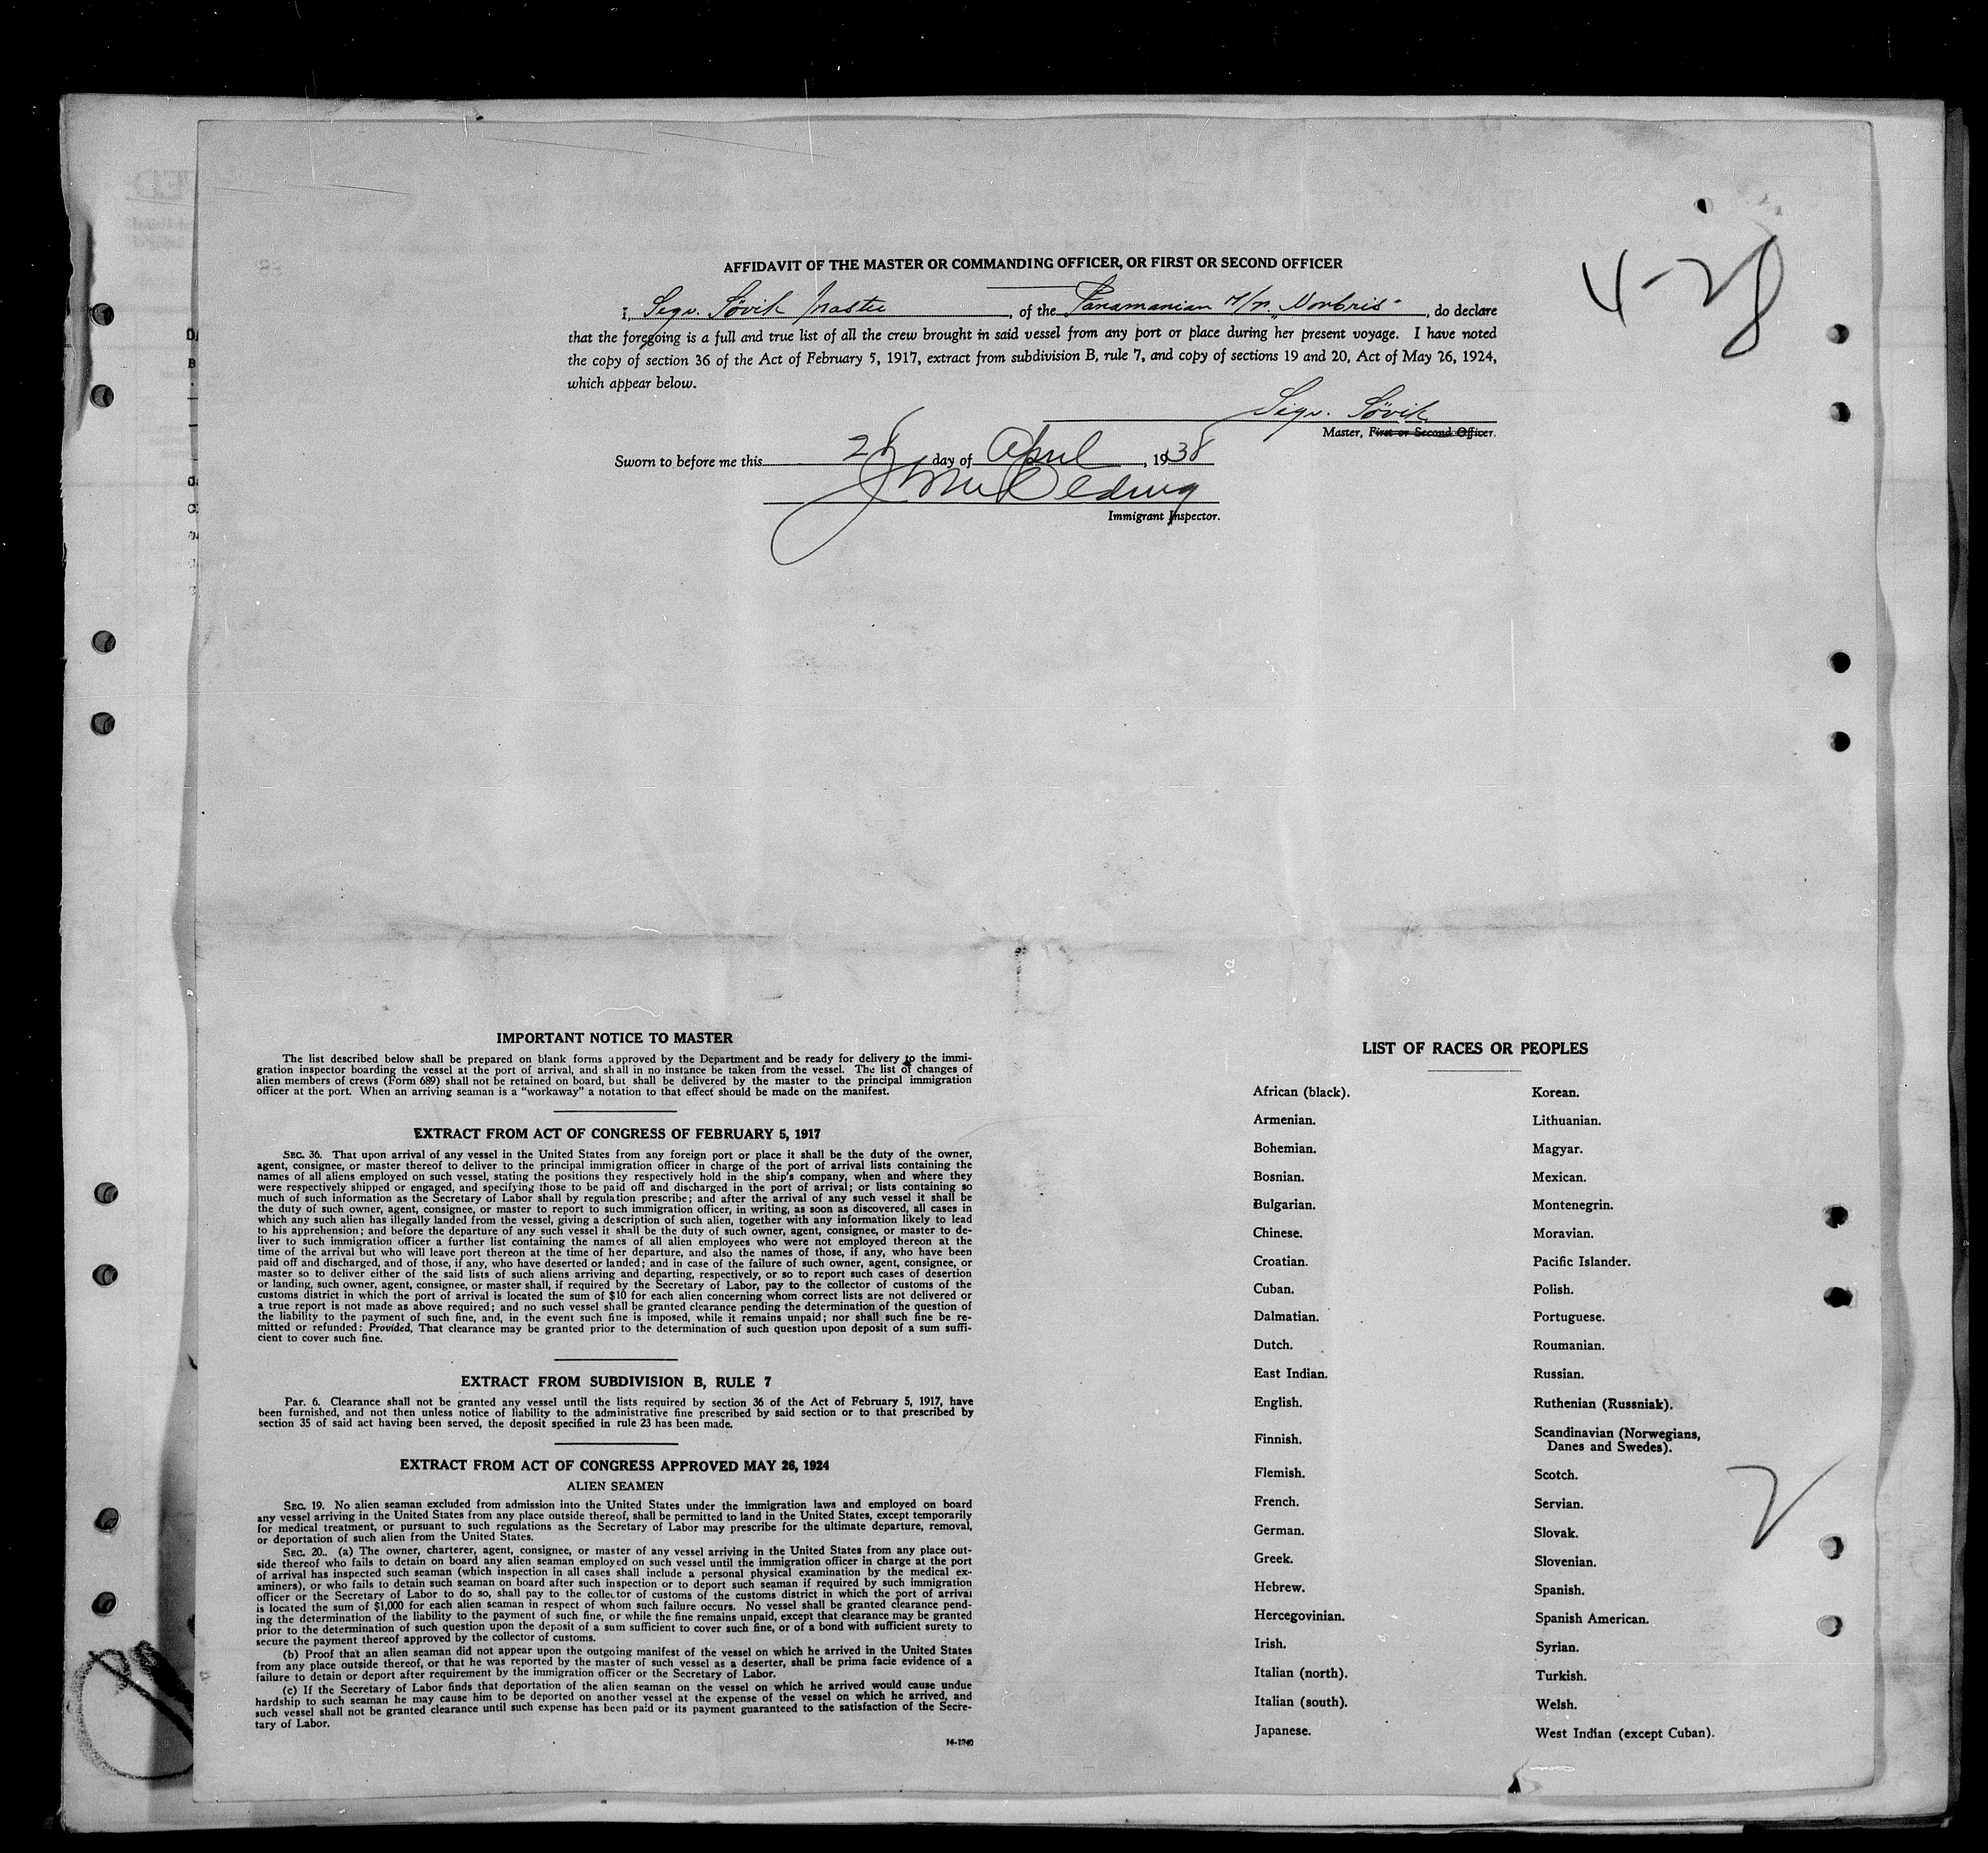 AFFIDAVIT OF THE MASTER OR COMMANDING OFFICER, OR FIRST OR SECOND OFFICER
4-28
I, Sigv. Sövik Master, of the Panamanian M/n. „Norbris", do declare
that the foregoing is a full and true list of all the crew brought in said vessel from any port or place during her present voyage. I have noted
the copy of section 36 of the Act of February 5, 1917, extract from subdivision B, rule 7, and copy of sections 19 and 20, Act of May 26, 1924,
which appear below.
Sigv. Sövik
Master, First or Second Officer.
Sworn to before me this 28 day of April, 1938
Immigrant Inspector.
IMPORTANT NOTICE TO MASTER
The list described below shall be prepared on blank forms approved by the Department and be ready for delivery to the immi-
gration inspector boarding the vessel at the port of arrival, and shall in no instance be taken from the vessel. The list of changes of
alien members of crews (Form 689) shall not be retained on board, but shall be delivered by the master to the principal immigration
officer at the port. When an arriving seaman is a "workaway" a notation to that effect should be made on the manifest.
EXTRACT FROM ACT OF CONGRESS OF FEBRUARY 5, 1917
SEC. 36. That upon arrival of any vessel in the United States from any foreign port or place it shall be the duty of the owner,
agent, consignee, or master thereof to deliver to the principal immigration officer in charge of the port of arrival lists containing the
names of all aliens employed on such vessel, stating the positions they respectively hold in the ship's company, when and where they
were respectively shipped or engaged, and specifying those to be paid off and discharged in the port of arrival; or lists containing so
much of such information as the Secretary of Labor shall by regulation prescribe; and after the arrival of any such vessel it shall be
the duty of such owner, agent, consignee, or master to report to such immigration officer, in writing, as soon as discovered, all cases in
which any such alien has illegally landed from the vessel, giving a description of such alien, together with any information likely to lead
to his apprehension; and before the departure of any such vessel it shall be the duty of such owner, agent, consignee, or master to de-
liver to such immigration officer a further list containing the names of all alien employees who were not employed thereon at the
time of the arrival but who will leave port thereon at the time of her departure, and also the names of those, if any, who have been
paid off and discharged, and of those, if any, who have deserted or landed; and in case of the failure of such owner, agent, consignee, or
master so to deliver either of the said lists of such aliens arriving and departing, respectively, or so to report such cases of desertion
or landing, such owner, agent, consignee, or master shall, if required by the Secretary of Labor, pay to the collector of customs of the
customs district in which the port of arrival is located the sum of $10 for each alien concerning whom correct lists are not delivered or
a true report is not made as above required; and no such vessel shall be granted clearance pending the determination of the question of
the liability to the payment of such fine, and, in the event such fine is imposed, while it remains unpaid; nor shall such fine be re-
mitted or refunded: Provided, That clearance may be granted prior to the determination of such question upon deposit of a sum suffi-
cient to cover such fine.
EXTRACT FROM SUBDIVISION B, RULE 7
Par. 6. Clearance shall not be granted any vessel until the lists required by section 36 of the Act of February 5, 1917, have
been furnished, and not then unless notice of liability to the administrative fine prescribed by said section or to that prescribed by
section 35 of said act having been served, the deposit specified in rule 23 has been made.
EXTRACT FROM ACT OF CONGRESS APPROVED MAY 26, 1924
ALIEN SEAMEN
SEC. 19. No alien seaman excluded from admission into the United States under the immigration laws and employed on board
any vessel arriving in the United States from any place outside thereof, shall be permitted to land in the United States, except temporarily
for medical treatment, or pursuant to such regulations as the Secretary of Labor may prescribe for the ultimate departure, removal,
or deportation of such alien from the United States.
SEC. 20.. (a) The owner, charterer, agent, consignee, or master of any vessel arriving in the United States from any place out-
side thereof who fails to detain on board any alien seaman employed on such vessel until the immigration officer in charge at the port
of arrival has inspected such seaman (which inspection in all cases shall include a personal physical examination by the medical ex-
aminers), or who fails to detain such seaman on board after such inspection or to deport such seaman if required by such immigration
officer or the Secretary of Labor to do so, shall pay to the collector of customs of the customs district in which the port of arrival
is located the sum of $1,000 for each alien seaman in respect of whom such failure occurs. No vessel shall be granted clearance pend-
ing the determination of the liability to the payment of such fine, or while the fine remains unpaid, except that clearance may be granted
prior to the determination of such question upon the deposit of a sum sufficient to cover such fine, or of a bond with sufficient surety to
secure the payment thereof approved by the collector of customs.
(b) Proof that an alien seaman did not appear upon the outgoing manifest of the vessel on which he arrived in the United States
from any place outside thereof, or that he was reported by the master of such vessel as a deserter, shall be prima facie evidence of a
failure to detain or deport after requirement by the immigration officer or the Secretary of Labor.
(c) If the Secretary of Labor finds that deportation of the alien seaman on the vessel on which he arrived would cause undue
hardship to such seaman he may cause him to be deported on another vessel at the expense of the vessel on which he arrived, and
such vessel shall not be granted clearance until such expense has been paid or its payment guaranteed to the satisfaction of the Secre-
tary of Labor.
14-1240
LIST OF RACES OR PEOPLES
African (black).
Armenian.
Bohemian.
Bosnian.
Bulgarian.
Chinese.
Croatian.
Cuban.
Dalmatian.
Dutch.
East Indian.
English.
Finnish.
Flemish.
French.
German.
Greek.
Hebrew.
Hercegovinian.
Irish.
Italian (north).
Italian (south).
Japanese.
Korean.
Lithuanian.
Magyar.
Mexican.
Montenegrin.
Moravian.
Pacific Islander.
Polish.
Portuguese.
Roumanian.
Russian.
Ruthenian (Russniak).
Scandinavian (Norwegians,
Danes and Swedes).
Scotch.
Servian.
Slovak.
Slovenian.
Spanish.
Spanish American.
Syrian.
Turkish.
Welsh.
West Indian (except Cuban).